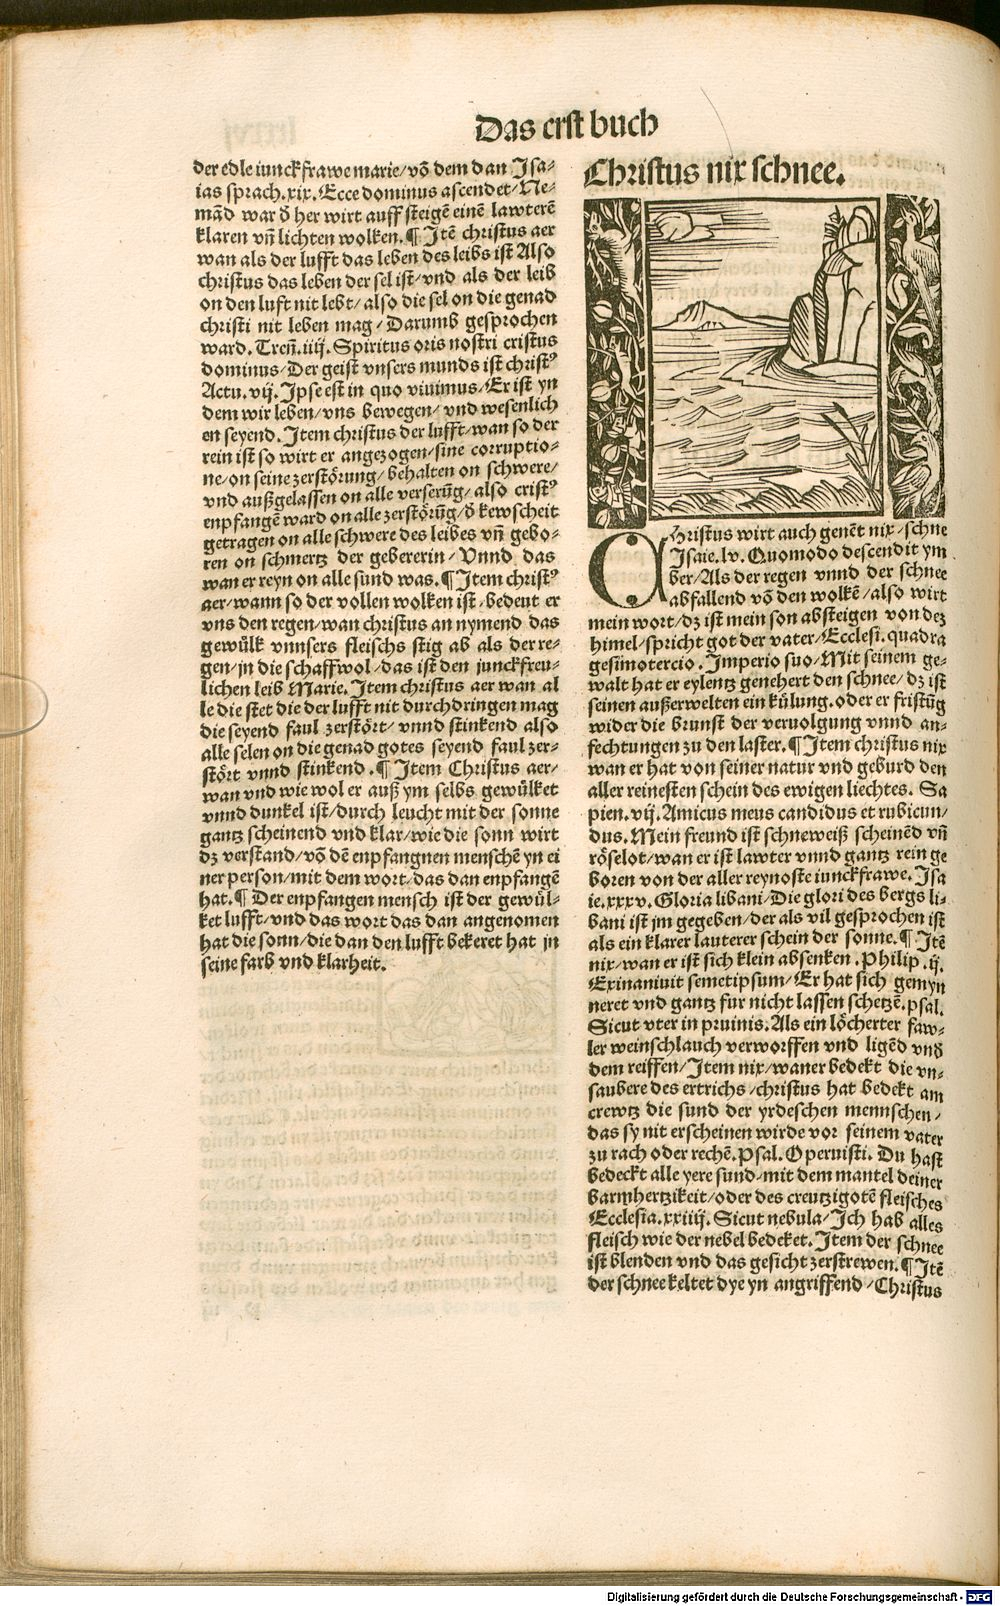 Das erst buch
der edle iunckfrawe marie/ võ dem dan Isa⸗
ias sprach. xix. Ecce dominus ascendet/ Ne⸗
mãd war d̕ her wirt auff steigẽ einẽ lawterẽ
klaren vñ lichten wolken. ¶ Itẽ christus aer
wan als der lufft das leben des leibs ist Also
christus das leben der sel ist/ vnd als der leib
on den luft nit lebt/ also die sel on die genad
christi nit leben mag/ Darumb gesprochen
ward. Treñ. iiij. Spiritus oris nostri cristus
dominus/ Der geist vnsers munds ist christꝰ
Actu. vij. Ipse est in quo viuimus/ Er ist yn
dem wir leben/ vns bewegen/ vnd wesenlich
en seyend. Item christus der lufft/ wan so der
rein ist so wirt er angezogen/ sine corruptio⸗
ne/ on seine zerstörung/ behalten on schwere/
vnd außgelassen on alle verserũg/ also cristꝰ
enpfangẽ ward on alle zerstörũg/ d̕ kewscheit
getragen on alle schwere des leibes vñ gebo⸗
ren on schmertz der gebererin/ Vnnd das
wan er reyn on alle sund was. ¶ Item christꝰ
aer/ wann so der vollen wolken ist/ bedeut er
vns den regen/ wan christus an nymend das
gewülk vnnsers fleischs stig ab als der re⸗
gen/ jn die schaffwol/ das ist den junckfreu⸗
lichen leib Marie. Item christus aer wan al
le die stet die der lufft nit durchdringen mag
die seyend faul zerstört/ vnnd stinkend also
alle selen on die genad gotes seyend faul zer⸗
stört vnnd stinkend. ¶ Item Christus aer/
wan vnd wie wol er auß ym selbs gewülket
vnnd dunkel ist/ durch leucht mit der sonne
gantz scheinend vnd klar/ wie die sonn wirt
dz verstand/ võ dẽ enpfangnen menschẽ yn ei
ner person/ mit dem wort/ das dan enpfangẽ
hat. ¶ Der enpfangen mensch ist der gewül⸗
ket lufft/ vnd das wort das dan angenomen
hat die sonn/ die dan den lufft bekeret hat jn
seine farb vnd klarheit.
Christus nix schnee.
Christus wirt auch genẽt nix/ schne
Isaie. lv. Quomodo descendit ym
ber/ Als der regen vnnd der schnee
abfallend võ den wolkẽ/ also wirt
mein wort/ dz ist mein son absteigen von dez
himel/ spricht got der vater/ Ecclesi. quadra
gesimotercio. Imperio suo/ Mit seinem ge⸗
walt hat er eylentz genehert den schnee/ dz ist
seinen außerwelten ein külung. oder er fristũg
wider die brunst der veruolgung vnnd an⸗
fechtungen zu den laster. ¶ Item christus nix
wan er hat von seiner natur vnd geburd den
aller reinesten schein des ewigen liechtes. Sa
pien. vij. Amicus meus candidus et rubicun/
dus. Mein freund ist schneweiß scheinẽd vñ
röselot/ wan er ist lawter vnnd gantz rein ge
boren von der aller reynoste iunckfrawe. Isa
ie. xxxv. Gloria libani/ Die glori des bergs li⸗
bani ist jm gegeben/ der als vil gesprochen ist
als ein klarer lauterer schein der sonne. ¶ Itẽ
nix/ wan er ist sich klein absenken. Philip. ij.
Exinaniuit semetipsum/ Er hat sich gemyn
neret vnd gantz fur nicht lassen schetzẽ. psal.
Sicut vter in pruinis. Als ein löcherter faw⸗
ler weinschlauch verworffen vnd ligẽd vnd̕
dem reiffen/ Item nix/ waner bedekt die vn⸗
saubere des ertrichs/ christus hat bedekt am
crewtz die sund der yrdeschen mennschen/
das sy nit erscheinen wirde vor seinem vater
zu rach oder rechẽ. Psal. Operuisti. Du hast
bedeckt alle yere sund/ mit dem mantel deiner
barmhertzikeit/ oder des creutzigotẽ fleisches
Ecclesia. xxiiij. Sicut nebula/ Ich hab alles
fleisch wie der nebel bedeket. Item der schnee
ist blenden vnd das gesicht zerstrewen. ¶ Itẽ
der schnee keltet dye yn angriffend/ Christus
Digitalisierung gefördert durch die Deutsche Forschungsgemeinschaft - DFG